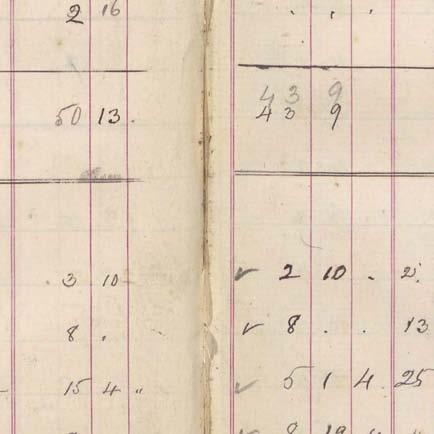 2 16
50 13 .
3 10
8 .
15 4 "
. . .
43 9
43 9
✓ 2 10 . 2
✓ 8 . . 13
✓ 5 1 4 25